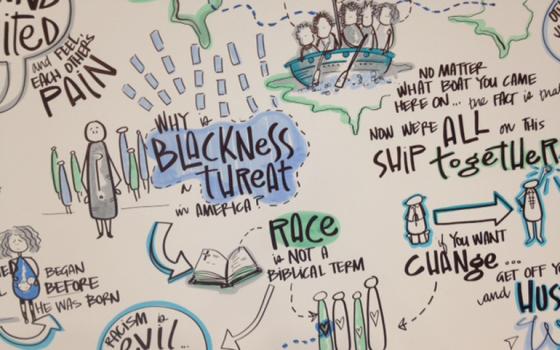 and FEEL
EACH OTHER'S
PAIN
WHY is
BLACKNESS
A THREAT
in AMERICA?
NO MATTER
WHAT BOAT YOU CAME
HERE ON... the FACT is that
NOW WE'RE ALL on THIS
SHIP together
RACE
is NOT A
BIBLICAL TERM
if YOU WANT
CHANGE...
GET OFF
and
BEGAN
BEFORE
HE WAS BORN
RACISM is
EVIL...